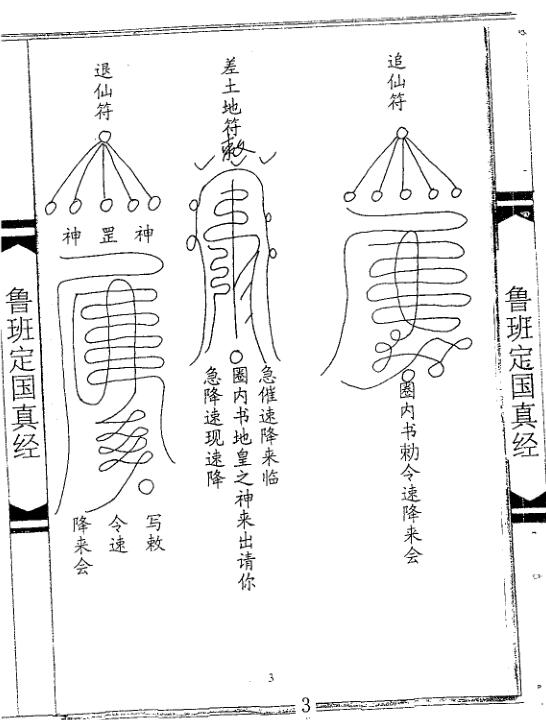 鲁班定国真经
追仙符
圈内书勅令速降来会
差土地符
敕
急催速降来临
圈内书地皇之神来出请你
急降速现速降
退仙符
神罡神
写敕
令速
降来会
鲁班定国真经
3
3